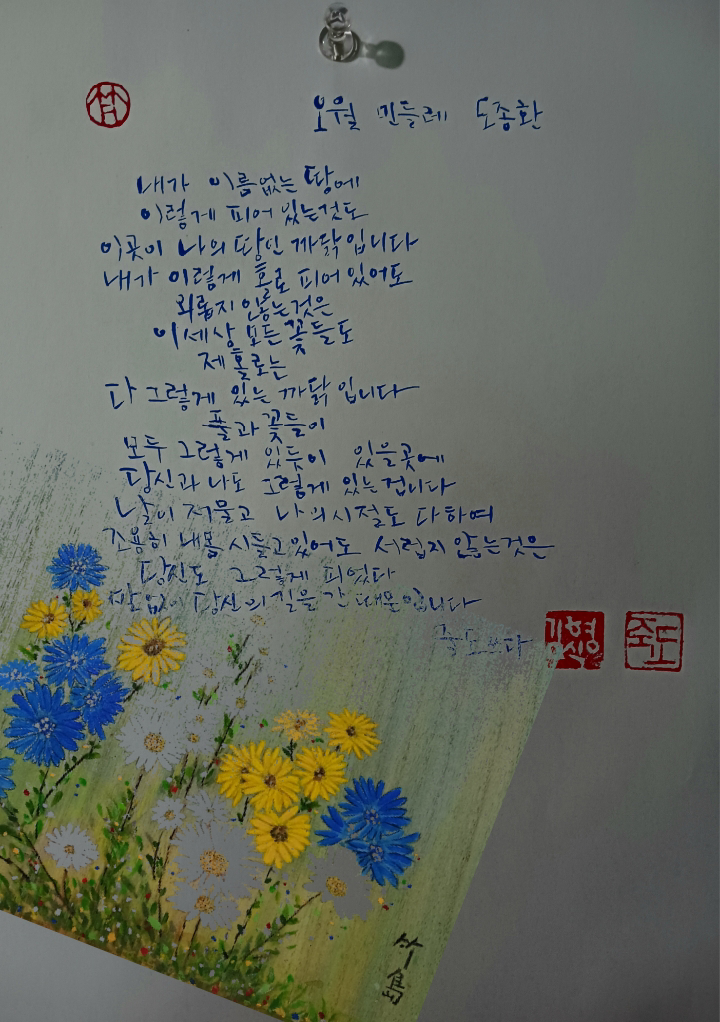 竹
오월 민들레 도종환
내가 이름없는 땅에
이렇게 피어 있는것도
이곳이 나의 땅인 까닭입니다
내가 이렇게 홀로 피어있어도
외롭지 않는것은
이세상 모든 꽃들도
제 홀로는
다 그렇게 있는 까닭입니다
풀과 꽃들이
모두 그렇게 있듯이 있을곳에
당신과 나도 그렇게 있는겁니다
날이 저물고 나의시절도 다하여
조용히 내몸 시들고있어도 서럽지 않는것은
당신도 그렇게 피었다
말없이 당신의 길을 간 때문입니다
쓰다
김형식
죽도
竹島